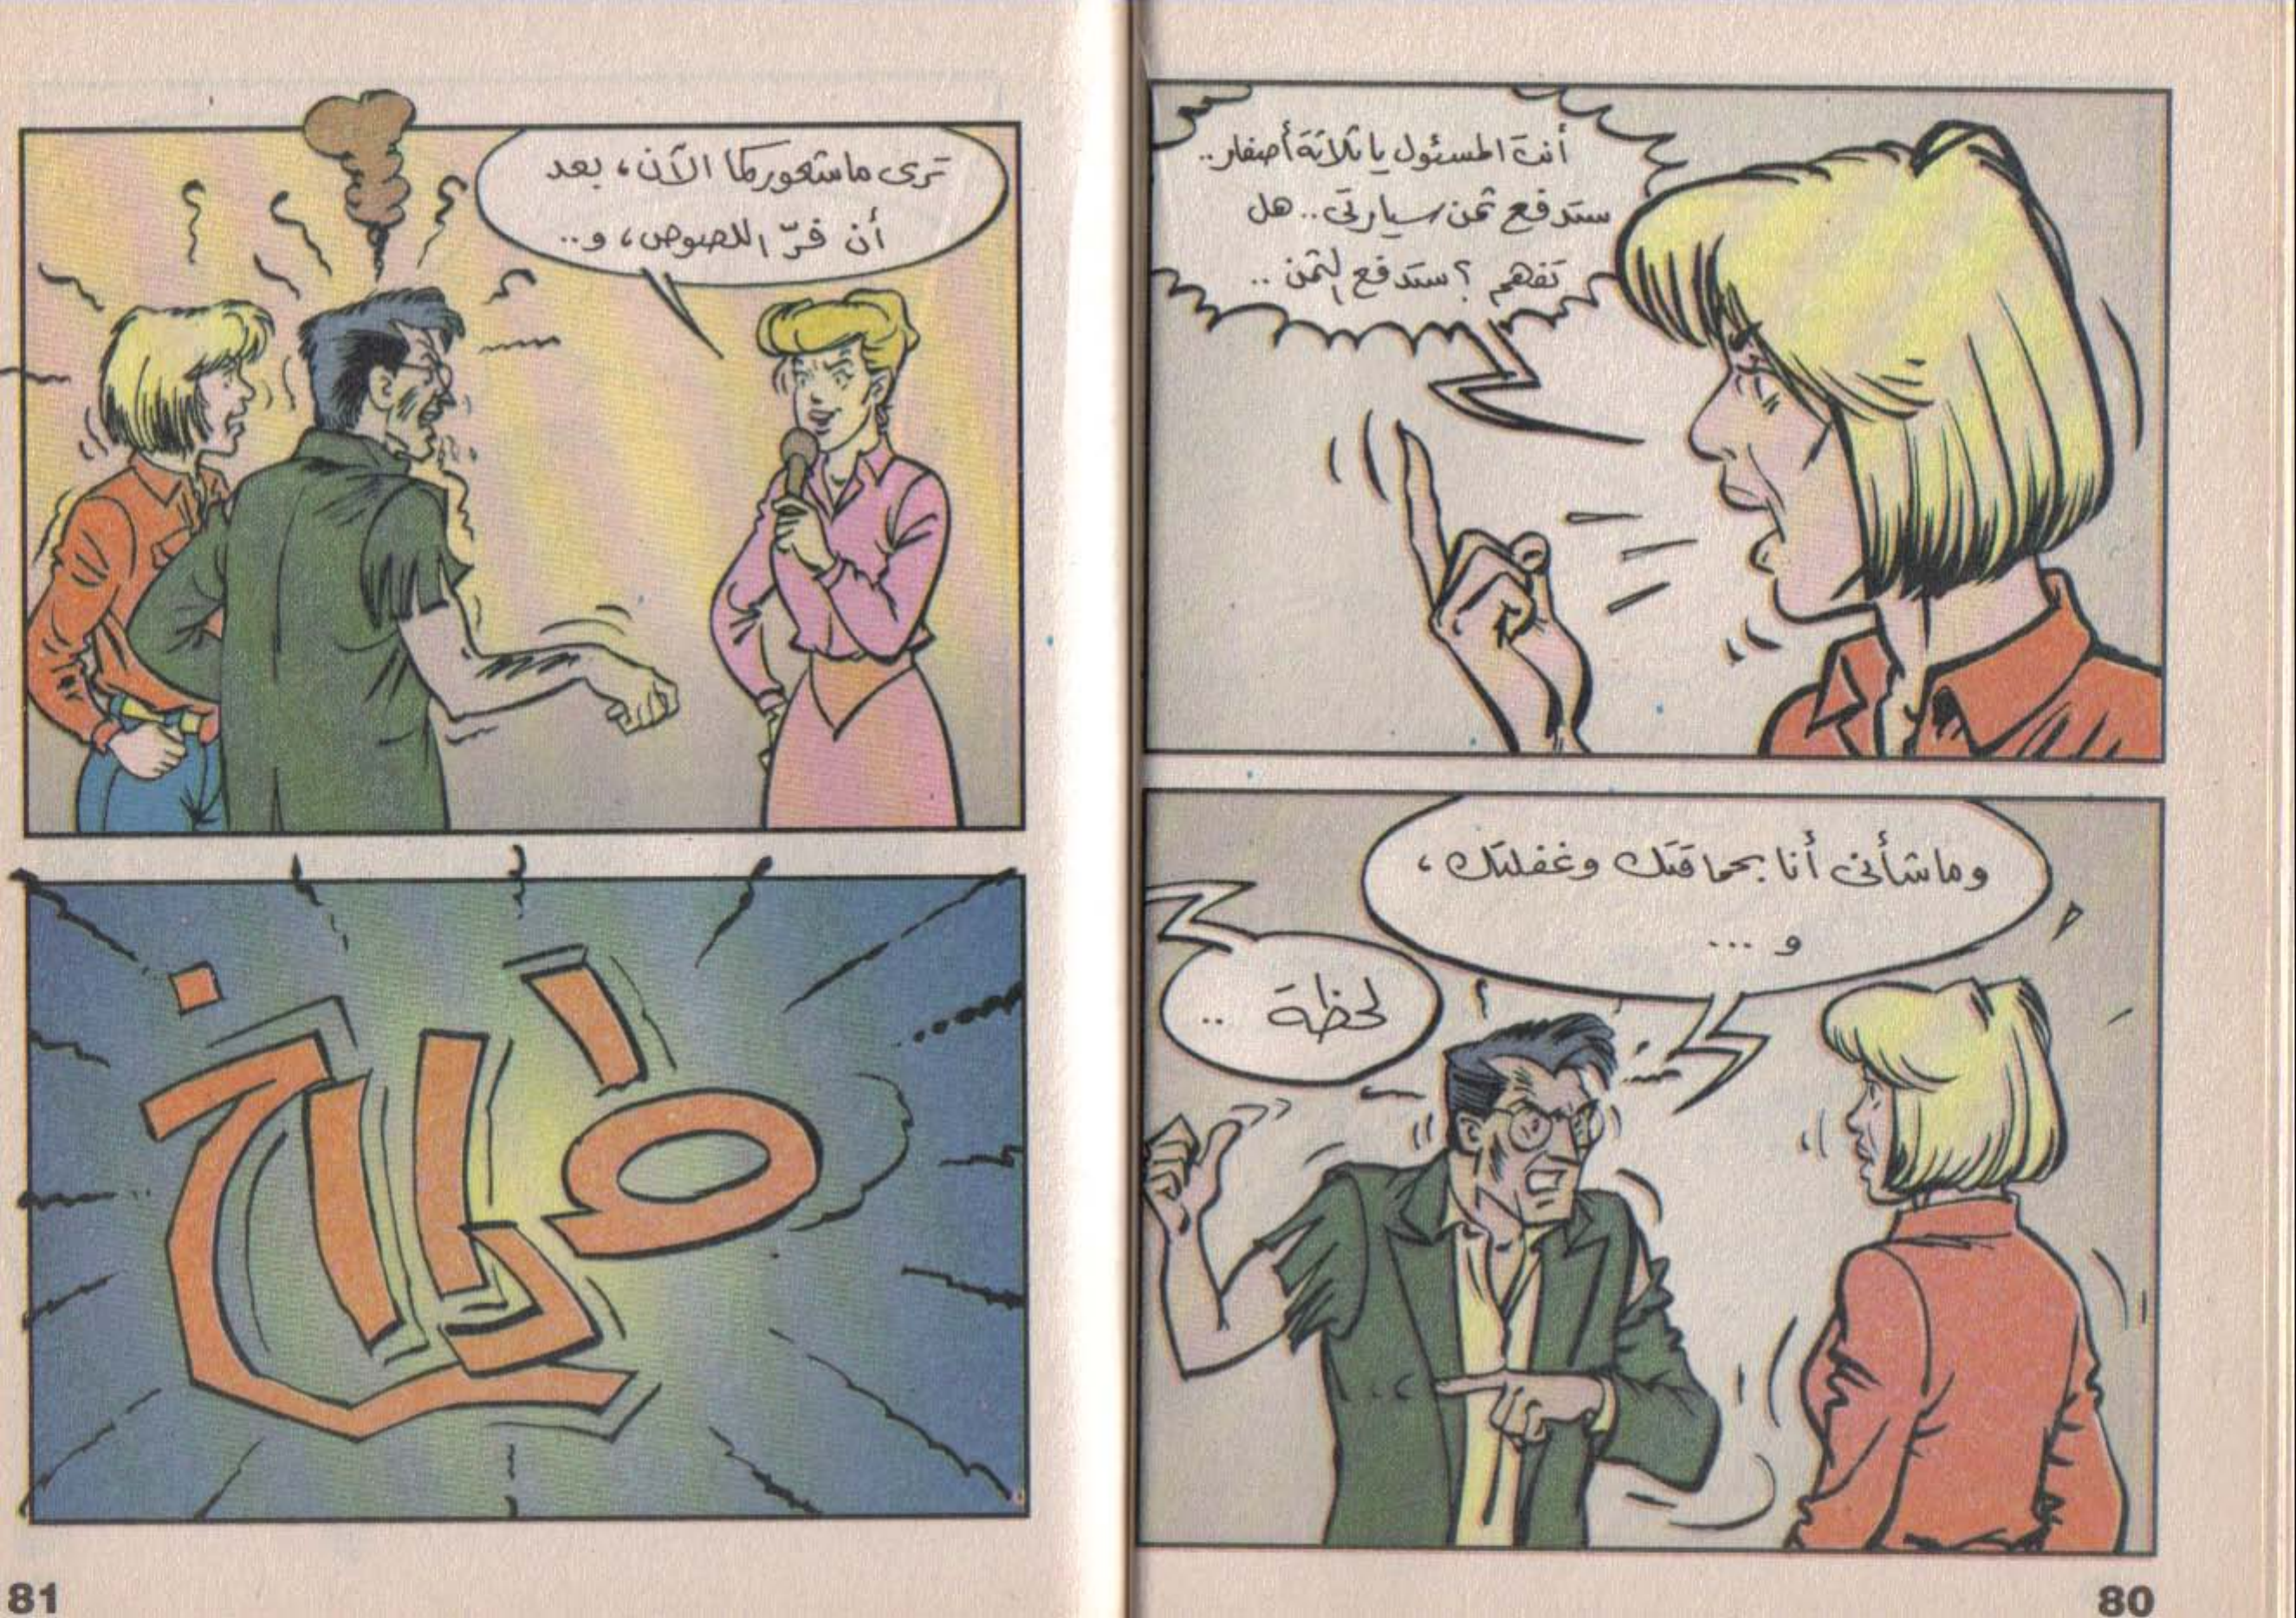 أنت المسئول يا ثلاثة أصفار..
ستدفع ثمن سيارتى.. هل
تفهم؟ ستدفع الثمن ..
وما شأنى أنا بحماقتك وغفلتك،
و ...
لحظة ..
80
ترى ما شعوركما الآن، بعد
أن فرّ اللصوص، و..
81